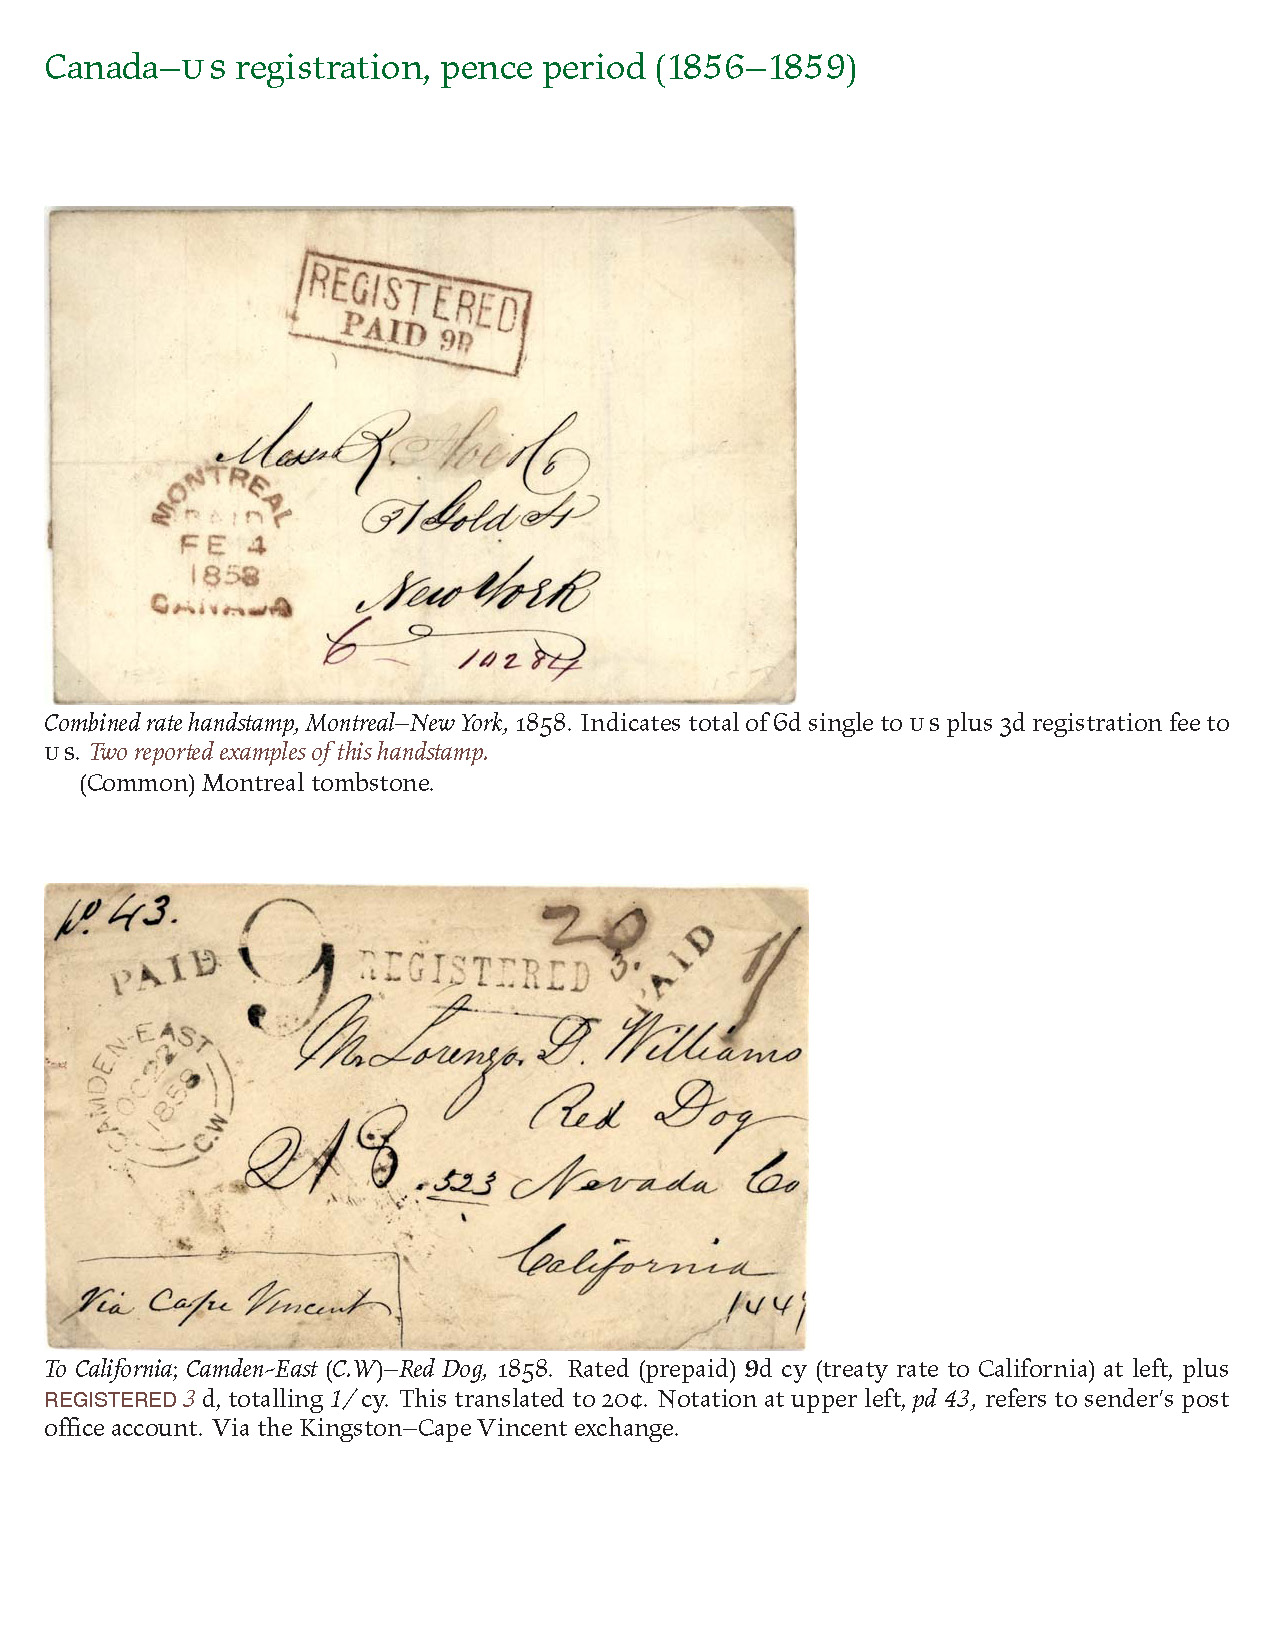 Canada–US registration, pence period (1856–1859)
REGISTERED
PAID 9D
Messrs R. Hoe & Co
31 Gold St
MONTREAL
PAID
FE 4
1858
CANADA
New York
6 10284
Combined rate handstamp, Montreal–New York, 1858. Indicates total of 6d single to US plus 3d registration fee to
US. Two reported examples of this handstamp.
(Common) Montreal tombstone.
pd. 43.
20
PAID 9 REGISTERED 3. PAID 1/
Mr Lorenzo. D. Williams
CAMDEN-EAST
OC 22
1858
C.W
Red Dog
523 Nevada Co
California
Via Cape Vincent
To California; Camden-East (C.W)–Red Dog, 1858. Rated (prepaid) 9d cy (treaty rate to California) at left, plus
REGISTERED 3 d, totalling 1/ cy. This translated to 20¢. Notation at upper left, pd 43, refers to sender's post
office account. Via the Kingston–Cape Vincent exchange.